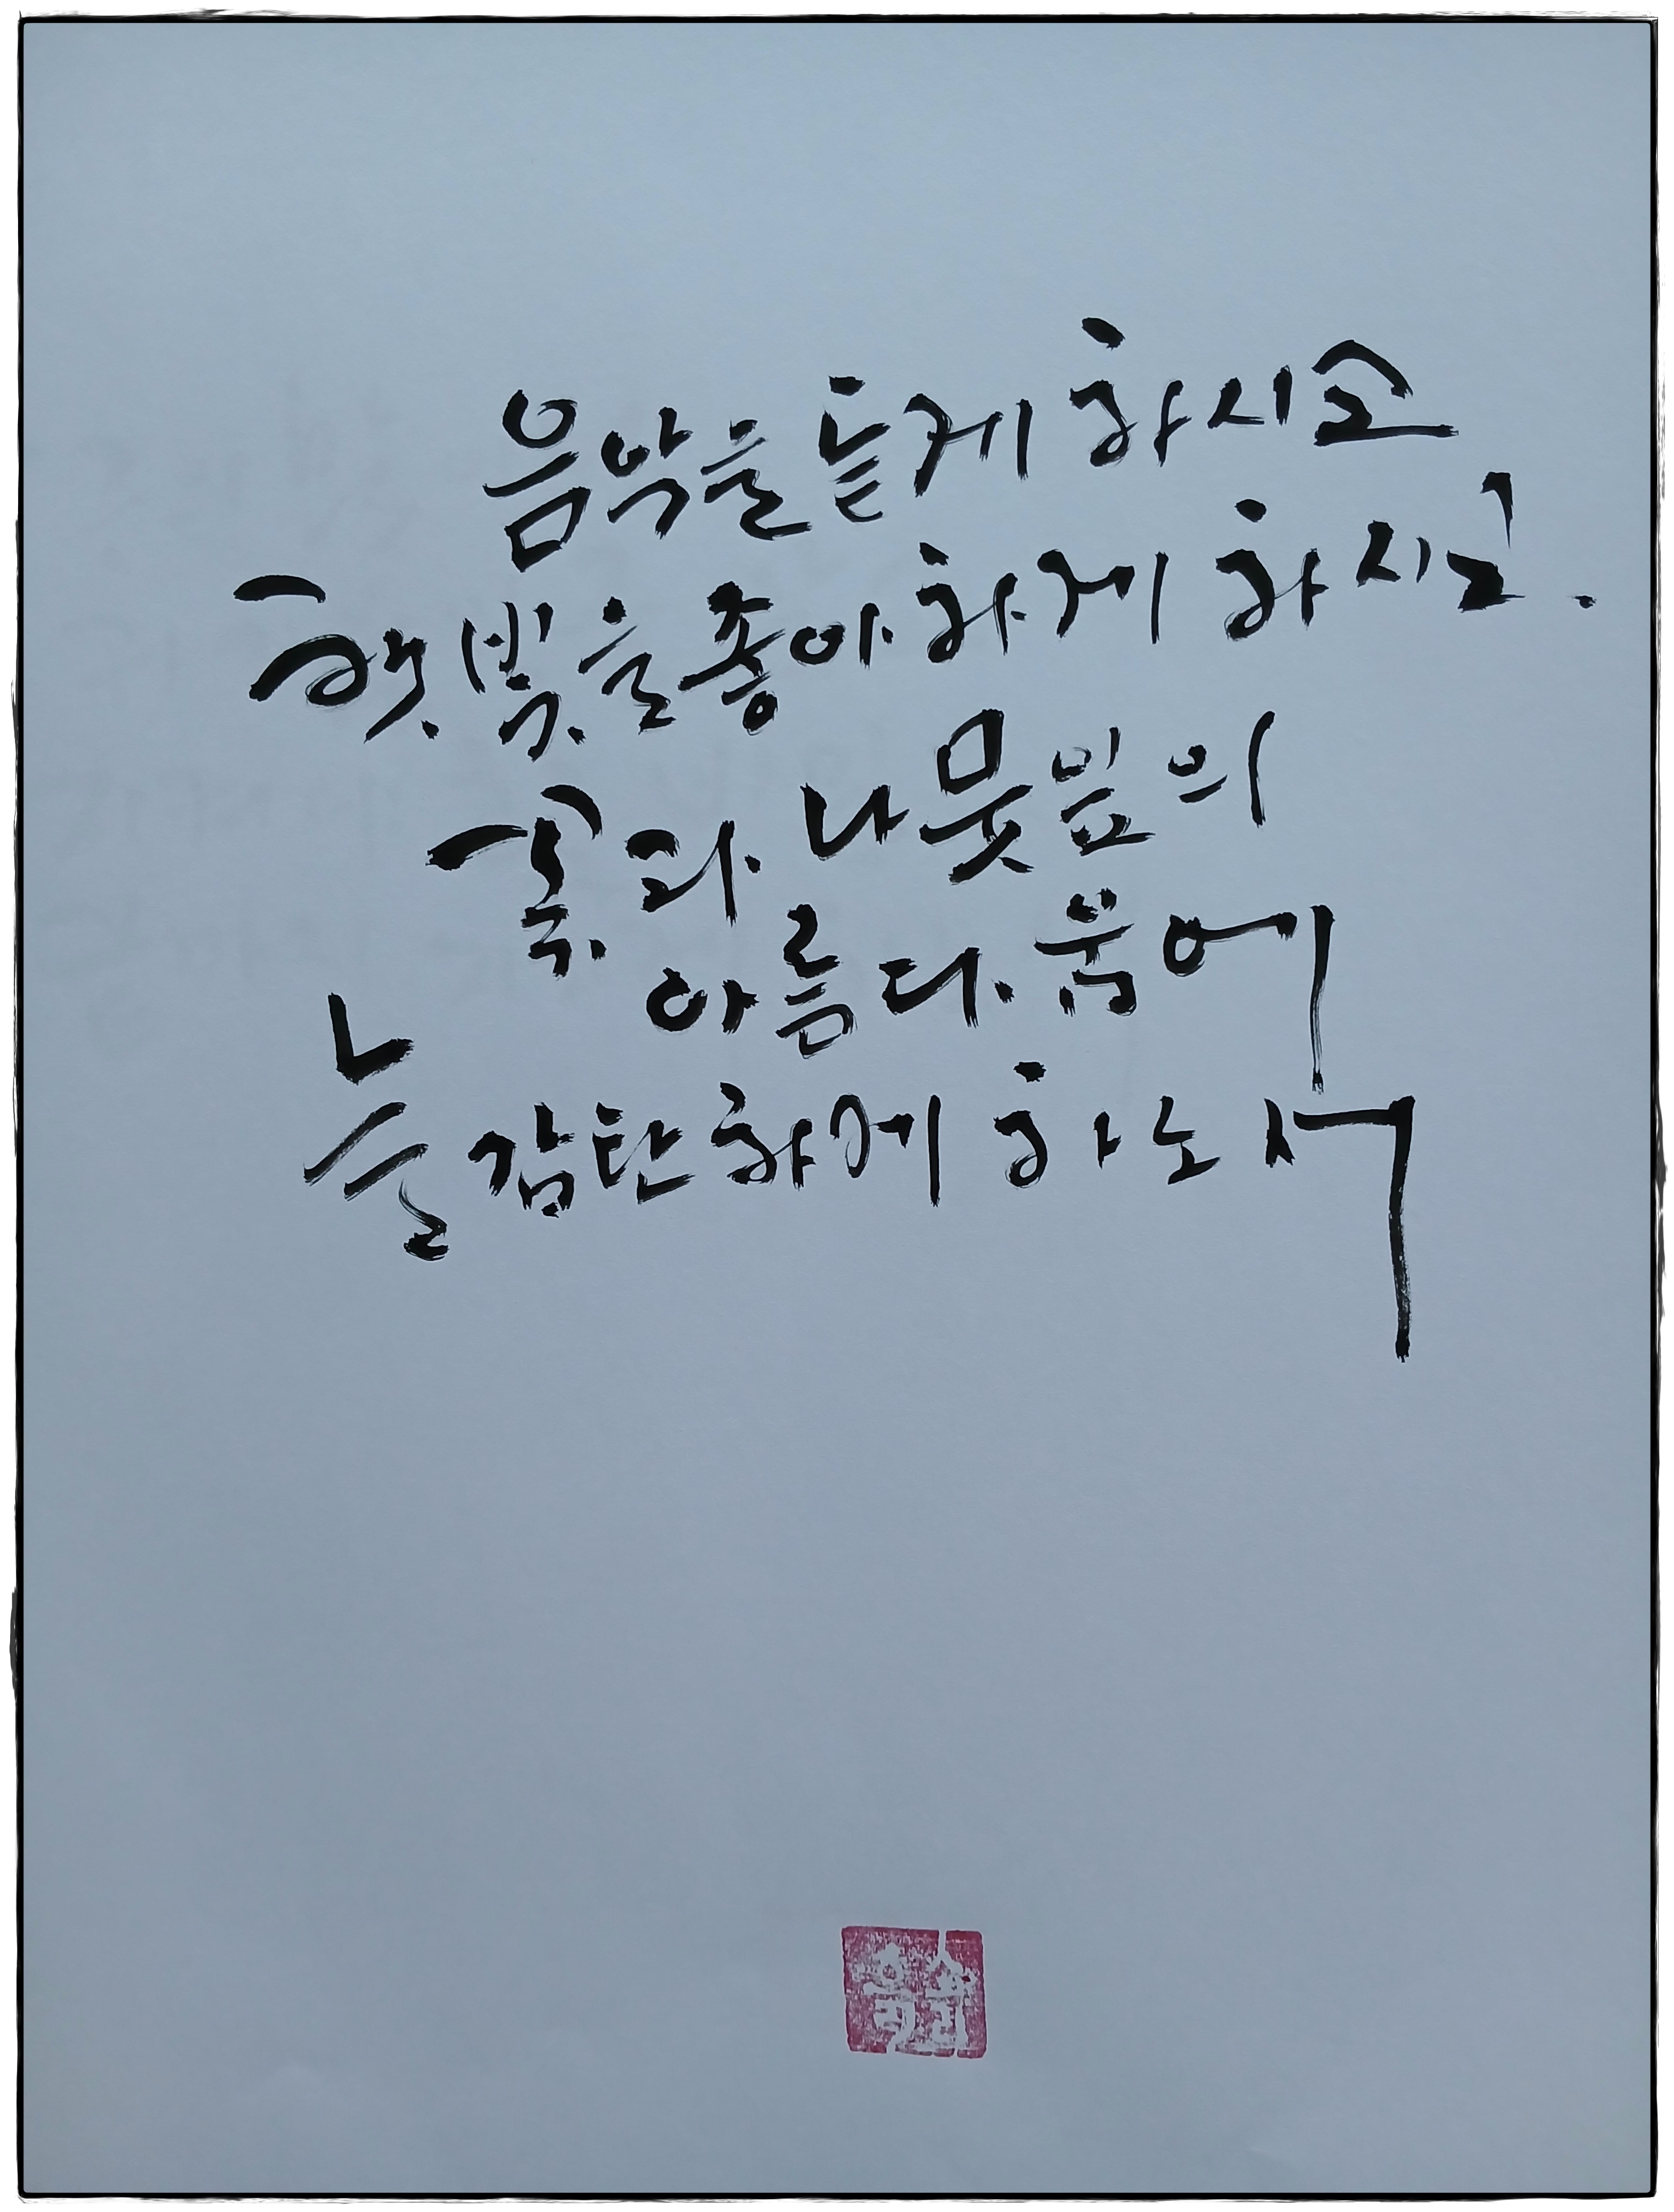 음악을 듣게 하시고
햇빛을 좋아하게 하시고.
꽃과 나뭇잎의
아름다움에
늘 감탄하게 하소서